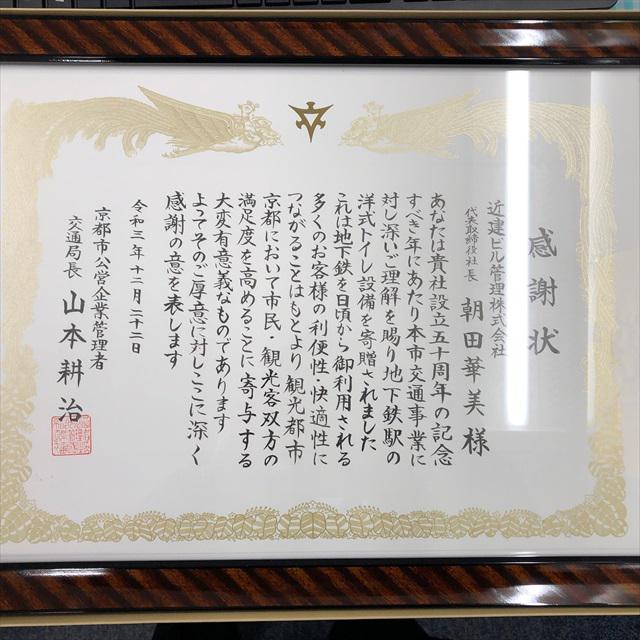 感謝状
近建ビル管理株式会社
代表取締役社長 朝田華美様
あなたは貴社設立五十周年の記念
すべき年にあたり本市交通事業に
対し深いご理解を賜り地下鉄駅の
洋式トイレ設備を寄贈されました
これは地下鉄を日頃から御利用される
多くのお客様の利便性・快適性に
つながることはもとより 観光都市
京都において市民・観光客双方の
満足度を高めることに寄与する
大変有意義なものであります
よってそのご厚意に対しここに深く
感謝の意を表します
令和三年十二月二十二日
京都市公営企業管理者
交通局長 山本耕治